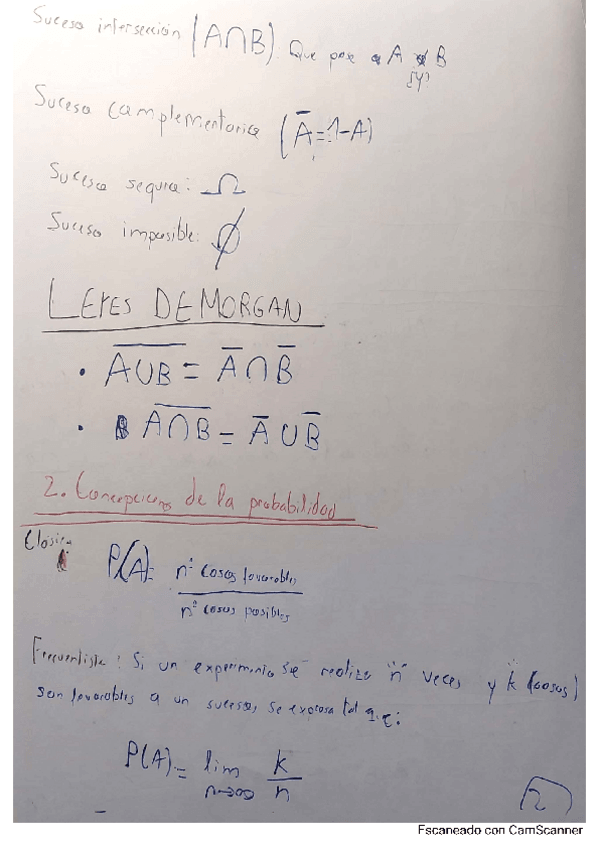 Suceso intersección (A∩B) Que pase a A y B
¡y!
Suceso complementario (A̅=1-A)
Suceso seguro: Ω
Suceso imposible: ∅
LEYES DE MORGAN
• A̅∪̅B̅ = A̅ ∩ B̅
• A̅∩̅B̅ = A̅ ∪ B̅
2. Concepciones de la probabilidad
Clásica
P(A)= nº casos favorables
nº casos posibles
Frecuentista: Si un experimento se realiza "n" veces y k (casos)
son favorables a un suceso, se expresa tal q.e:
P(A) = lim k/n
n→∞
2
Escaneado con CamScanner